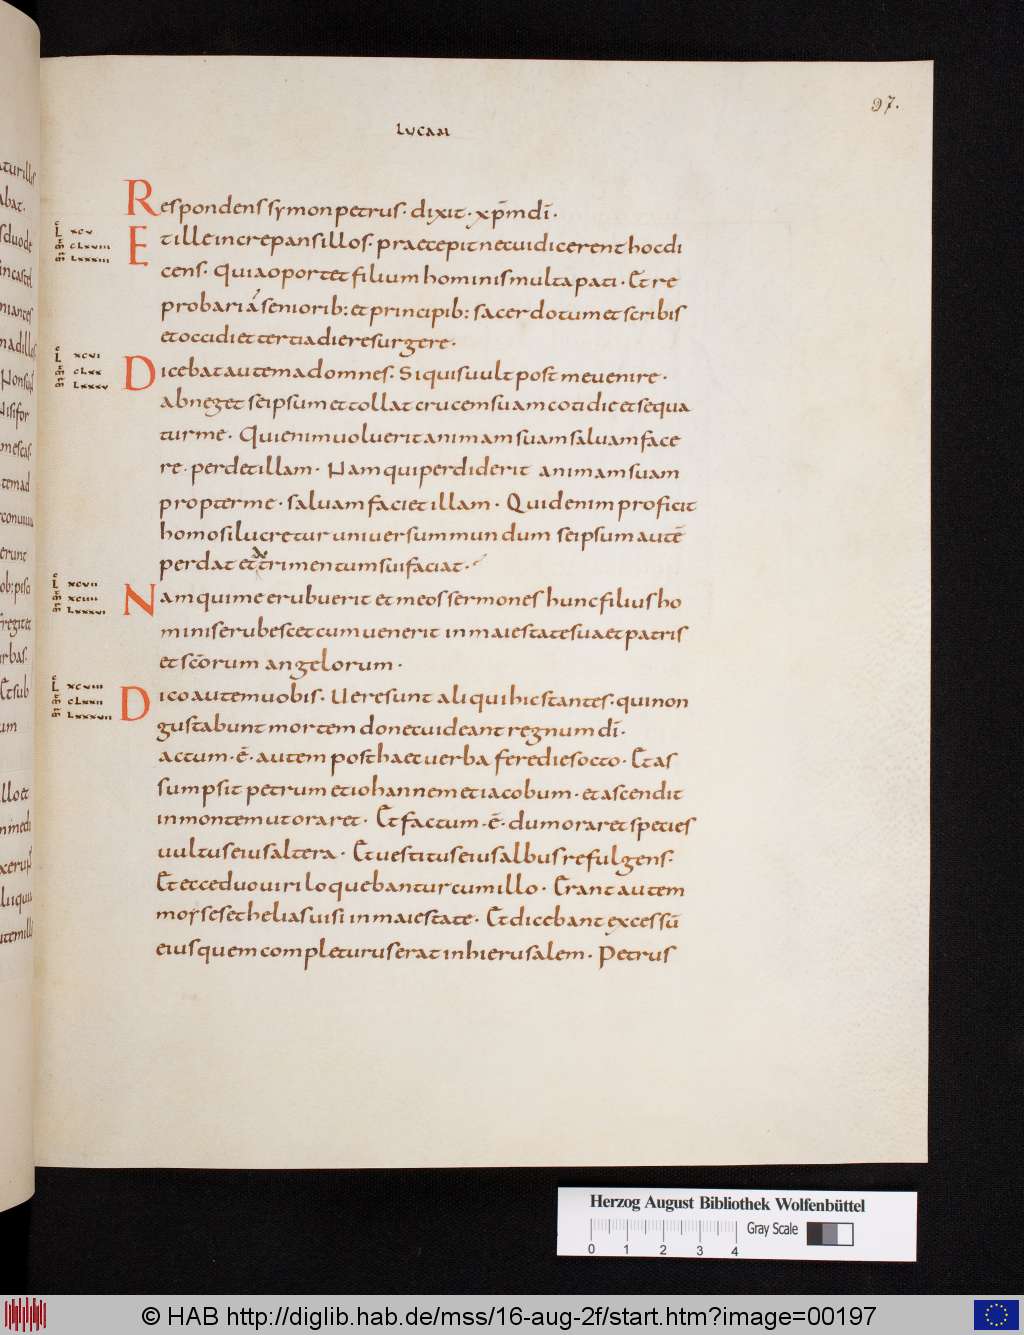 97.
LUCAM
Respondens symon petrus· dixit· xp̄m dī·
Et ille increpans illos· praecepit ne cui dicerent hoc di
cens· Quia oportet filium hominis multa pati· Et re
probari á seniorib: et principib: sacerdotum et scribis
et occidi et tertia die resurgere·
Dicebat autem ad omnes· Si quis uult post me uenire·
abneget seipsum et tollat crucem suam cotidie et sequa
tur me· Qui enim uoluerit animam suam saluam face
re· perdet illam· Nam qui perdiderit animam suam
propter me· saluam faciet illam· Quid enim proficit
homo si lucretur uniuersum mundum seipsum autē
perdat et trimentum sui faciat·
Nam qui me erubuerit et meos sermones hunc filius ho
minis erubescet cum uenerit in maiestate sua et patris
et scōrum angelorum·
Dico autem uobis· Uere sunt aliqui hic stantes· qui non
gustabunt mortem donec uideant regnum dī·
actum· ē· autem post haec uerba fere dies octo· Et as
sumpsit petrum et iohannem et iacobum· et ascendit
in montem ut oraret· Et factum· ē· dum oraret species
uultus eius altera· Et uestitus eius albus refulgens·
Et ecce duo uiri loquebantur cum illo· Erant autem
moyses et helias uisi in maiestate· Et dicebant excessū
eius quem completurus erat in hierusalem· Petrus
L xcv
m clxviii
m lxxxiii
L xcvi
m clxx
m lxxxv
L xcvii
m xciiii
m lxxxvi
L xcviii
m clxxii
m lxxxvii
Herzog August Bibliothek Wolfenbüttel
Gray Scale
0 1 2 3 4
© HAB http://diglib.hab.de/mss/16-aug-2f/start.htm?image=00197